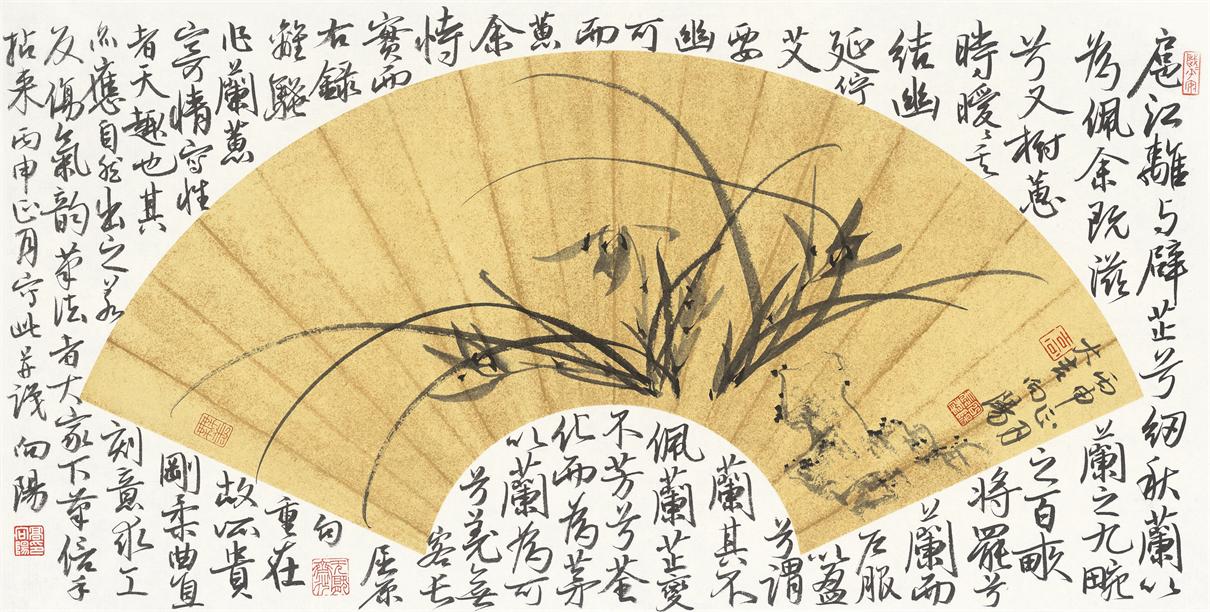 扈江離与辟芷兮紉秋蘭以
為佩余既滋
蘭之九畹
兮又樹蕙
之百畝
時曖曖其
將罷兮
結幽
蘭而
延佇
戶服
艾
以盈
要
兮謂
幽
蘭其不
可
佩蘭芷變
而
不芳兮荃
蕙
化而為茅
余
以蘭為可
恃
兮羌無
實而
容長
右錄
屈原
離騷
句
作蘭蕙
重在
寄情寫性
故所貴
者天趣也其
剛柔曲直
亦應自然出之若
刻意求工
反傷氣韵筆法者大家下筆信手
拈来丙申正月寫此并識 向陽
丙申正月
向陽